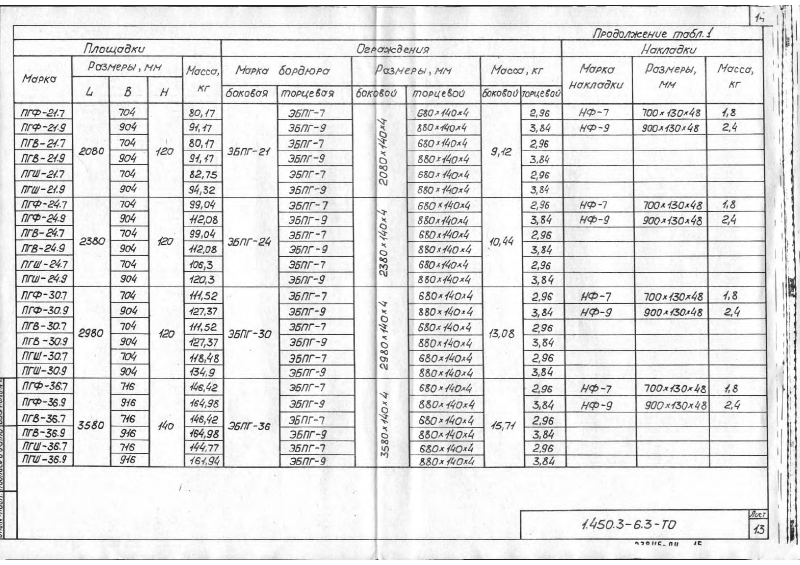 14
Продолжение табл.1
Площадки Ограждения Накладки
Марка Размеры, мм Масса, кг Марка бордюра Размеры, мм Масса, кг Марка накладки Размеры, мм Масса, кг
L B H боковая торцевая боковой торцевой боковой торцевой
ПГФ-21.7 2080 704 120 80,17 ЭБПГ-21 ЭБПГ-7 2080×140×4 680×140×4 9,12 2,96 НФ-7 700×130×48 1,8
ПГФ-21.9 904 91,17 ЭБПГ-9 880×140×4 3,84 НФ-9 900×130×48 2,4
ПГВ-21.7 704 80,17 ЭБПГ-7 680×140×4 2,96
ПГВ-21.9 904 91,17 ЭБПГ-9 880×140×4 3,84
ПГШ-21.7 704 82,75 ЭБПГ-7 680×140×4 2,96
ПГШ-21.9 904 94,32 ЭБПГ-9 880×140×4 3,84
ПГФ-24.7 2380 704 120 99,04 ЭБПГ-24 ЭБПГ-7 2380×140×4 680×140×4 10,44 2,96 НФ-7 700×130×48 1,8
ПГФ-24.9 904 112,08 ЭБПГ-9 880×140×4 3,84 НФ-9 900×130×48 2,4
ПГВ-24.7 704 99,04 ЭБПГ-7 680×140×4 2,96
ПГВ-24.9 904 112,08 ЭБПГ-9 880×140×4 3,84
ПГШ-24.7 704 106,3 ЭБПГ-7 680×140×4 2,96
ПГШ-24.9 904 120,3 ЭБПГ-9 880×140×4 3,84
ПГФ-30.7 2980 704 120 111,52 ЭБПГ-30 ЭБПГ-7 2980×140×4 680×140×4 13,08 2,96 НФ-7 700×130×48 1,8
ПГФ-30.9 904 127,37 ЭБПГ-9 880×140×4 3,84 НФ-9 900×130×48 2,4
ПГВ-30.7 704 111,52 ЭБПГ-7 680×140×4 2,96
ПГВ-30.9 904 127,37 ЭБПГ-9 880×140×4 3,84
ПГШ-30.7 704 118,48 ЭБПГ-7 680×140×4 2,96
ПГШ-30.9 904 134,9 ЭБПГ-9 880×140×4 3,84
ПГФ-36.7 3580 716 140 146,42 ЭБПГ-36 ЭБПГ-7 3580×140×4 680×140×4 15,71 2,96 НФ-7 700×130×48 1,8
ПГФ-36.9 916 164,98 ЭБПГ-9 880×140×4 3,84 НФ-9 900×130×48 2,4
ПГВ-36.7 716 146,42 ЭБПГ-7 680×140×4 2,96
ПГВ-36.9 916 164,98 ЭБПГ-9 880×140×4 3,84
ПГШ-36.7 716 144,77 ЭБПГ-7 680×140×4 2,96
ПГШ-36.9 916 161,94 ЭБПГ-9 880×140×4 3,84
1.450.3-6.3-ТО
Лист
13